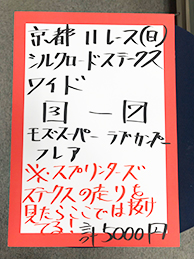 京都 11レース(日)
シルクロードステークス
ワイド
ー
モズスーパー ラブカンプー
フレア
※スプリンターズ
ステークスの走りを
見たらここでは抜け
てる! 計5000円